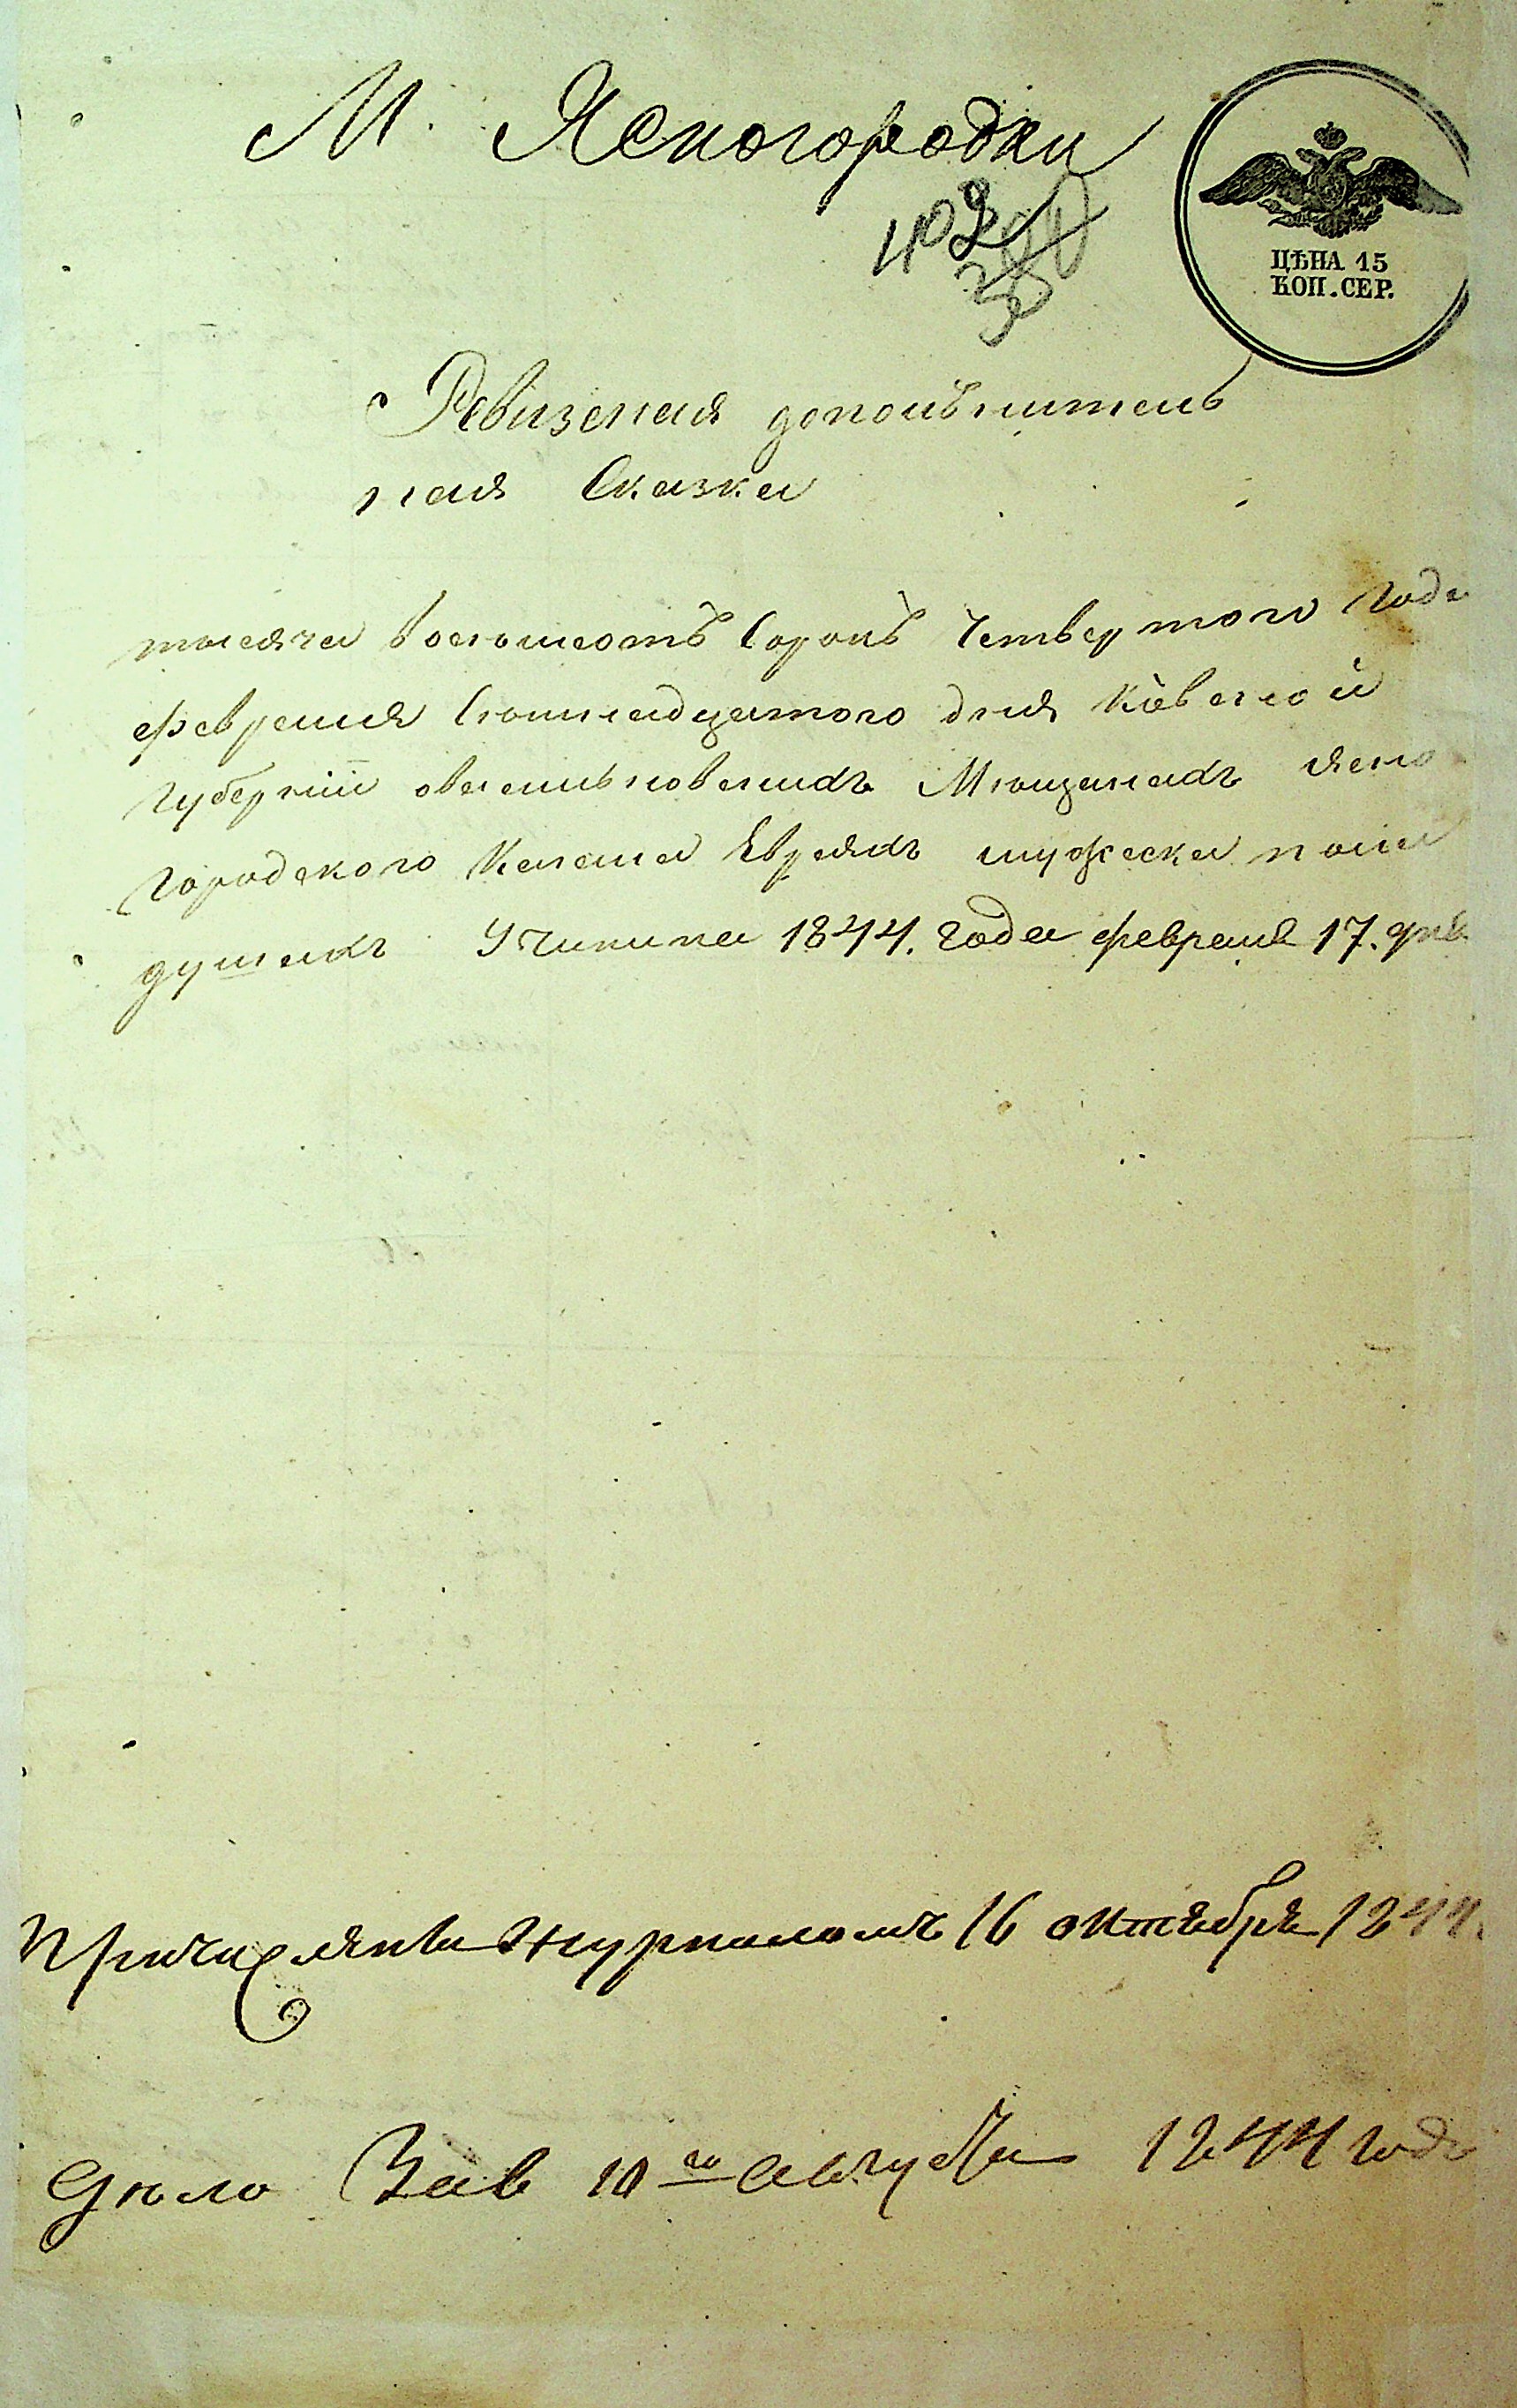 М. Ясногородки
ЦѢНА 15
КОП. СЕР.
402
Ревизская дополънитель
ная Сказка
тысяча восемьсотъ Сорокъ Четвертого года
февраля Семнадцатого дня Кіевской
губерніи овасильковскихъ Мещанахъ ясно
городского Кагала Евреяхъ мужеска пола
душахъ Учинина 1844. года февраля 17. дня
Причислены Журналомъ 16 октября 1844.
Дѣло Зав 10го августа 1844 года